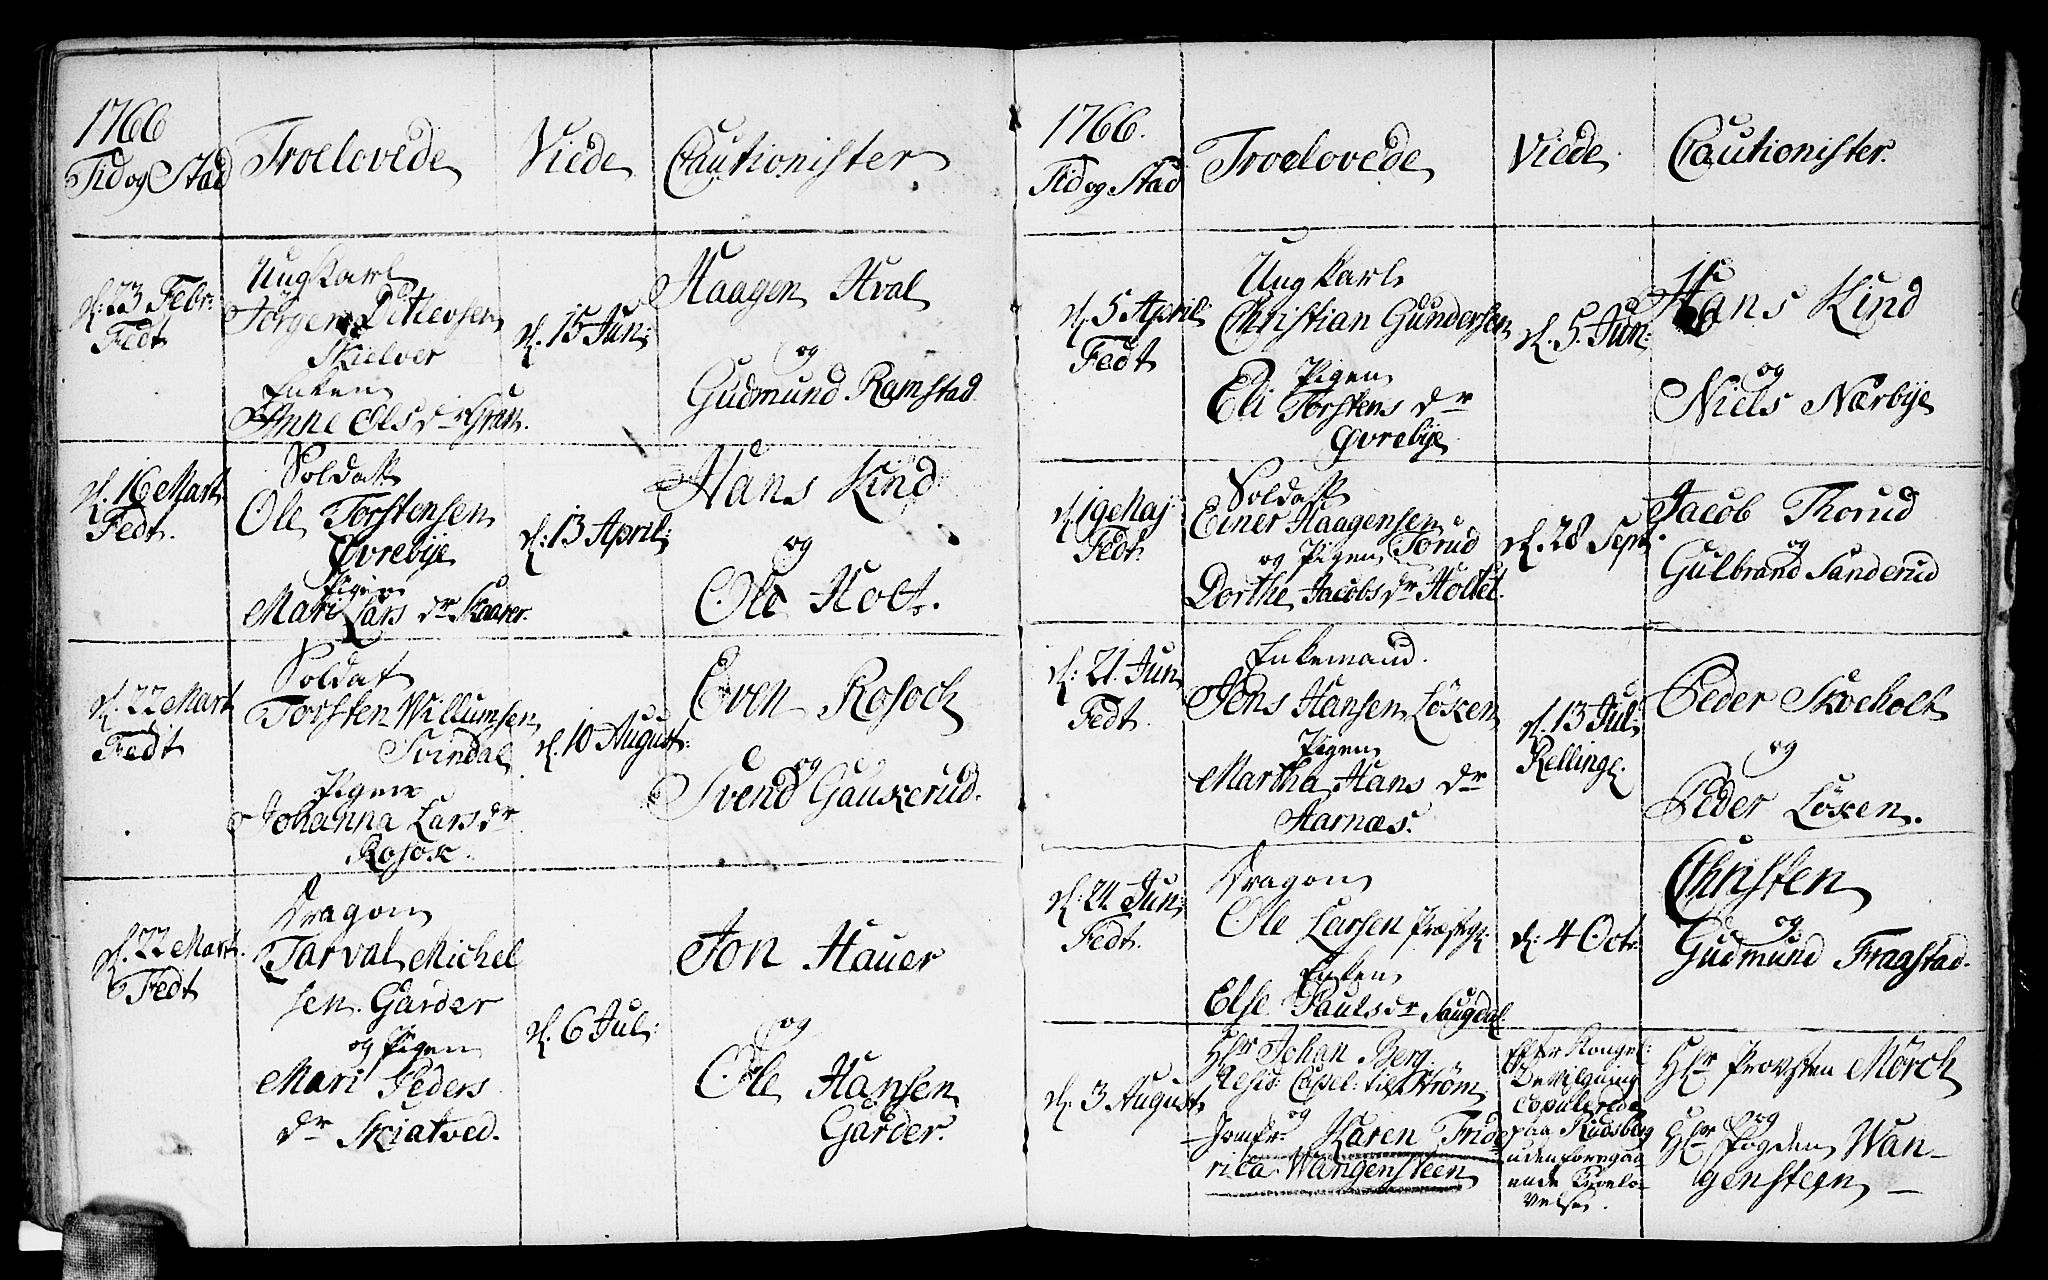 1766
Tid og Stad
Troelovede
Viede
Cautionister
d: 23 Febr:
Fedt
Ung Karl
Jörgen Ditlevsen
Skielver
Enken
Anne Ols dr Gran.
d. 15 Jun:
Haagen Hval
og
Gudmund Ramstad
d. 16 Mart
Fedt.
Soldatt
Ole Torstensen
Øvrebÿe
Pigen
Mari Lars dr Skaarer.
d: 13 April:
Hans Kind
og
Ole Holt.
d. 22 Mart
Fedt
Soldat
Torsten Willumsen
Svindal
Pigen
Johanna Lars dr
Rosok.
d. 10 August:
Even Rosoch
og
Svend Gauskerud.
d. 22 Mart.
Fedt
Dragon
Tarval Michel
sen. Garder
og Pigen
Mari Peders
dr Skiatved.
d. 6 Jul:
Jon Hauer
og
Ole Hansen
Garder.
1766.
Tid og Stad
Troelovede
Viede.
Cautionister.
d. 5 April:
Fedt
Ung Karl
Christian Gundersen
Pigen
Eli Torstens dr
Øvrebÿe
d. 5. Jun:
Hans Kind
og
Niels Nærbÿe
d. 19 Maj:
Fedt.
Soldatt
Einer Haagensen
og Pigen Torud
Dorthe Jacobs dr Holtet.
d. 28 Sept.
Jacob Thorud
og
Gulbrand Sanderud
d: 21. Jun
Fedt.
Enkemand.
Jens Hansen Lösken
Pigen
Martha Hans dr
Harnæs.
d. 13 Jul:
Rellinge.
Peder Skoeholt
og
Peder Lösken.
d: 24 Jun:
Fedt.
Dragon
Ole Larsen
Enken
Else Pauls dr Saugdal
d: 4 Octr
Christen
og
Gudmund Fragstad.
d. 3 August
Hr Johan Berg.
Resid: Capel: til Ström
og
Jomfr: Karen Fride
rica Wangensteen
Efter Kongel:
Bevilgning
copulerede
paa Rudsberg
uden foregaa
ende Troelo-
velse.
Hr Provsten Mörch
og
Hr Fogden Wan-
gensteen